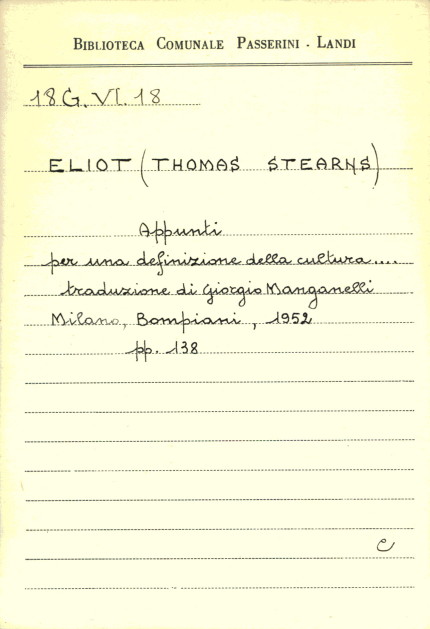 BIBLIOTECA COMUNALE PASSERINI - LANDI
18 G. VI. 18
ELIOT (THOMAS STEARNS)
Appunti
per una definizione della cultura....
traduzione di Giorgio Manganelli
Milano, Bompiani, 1952
pp. 138
C